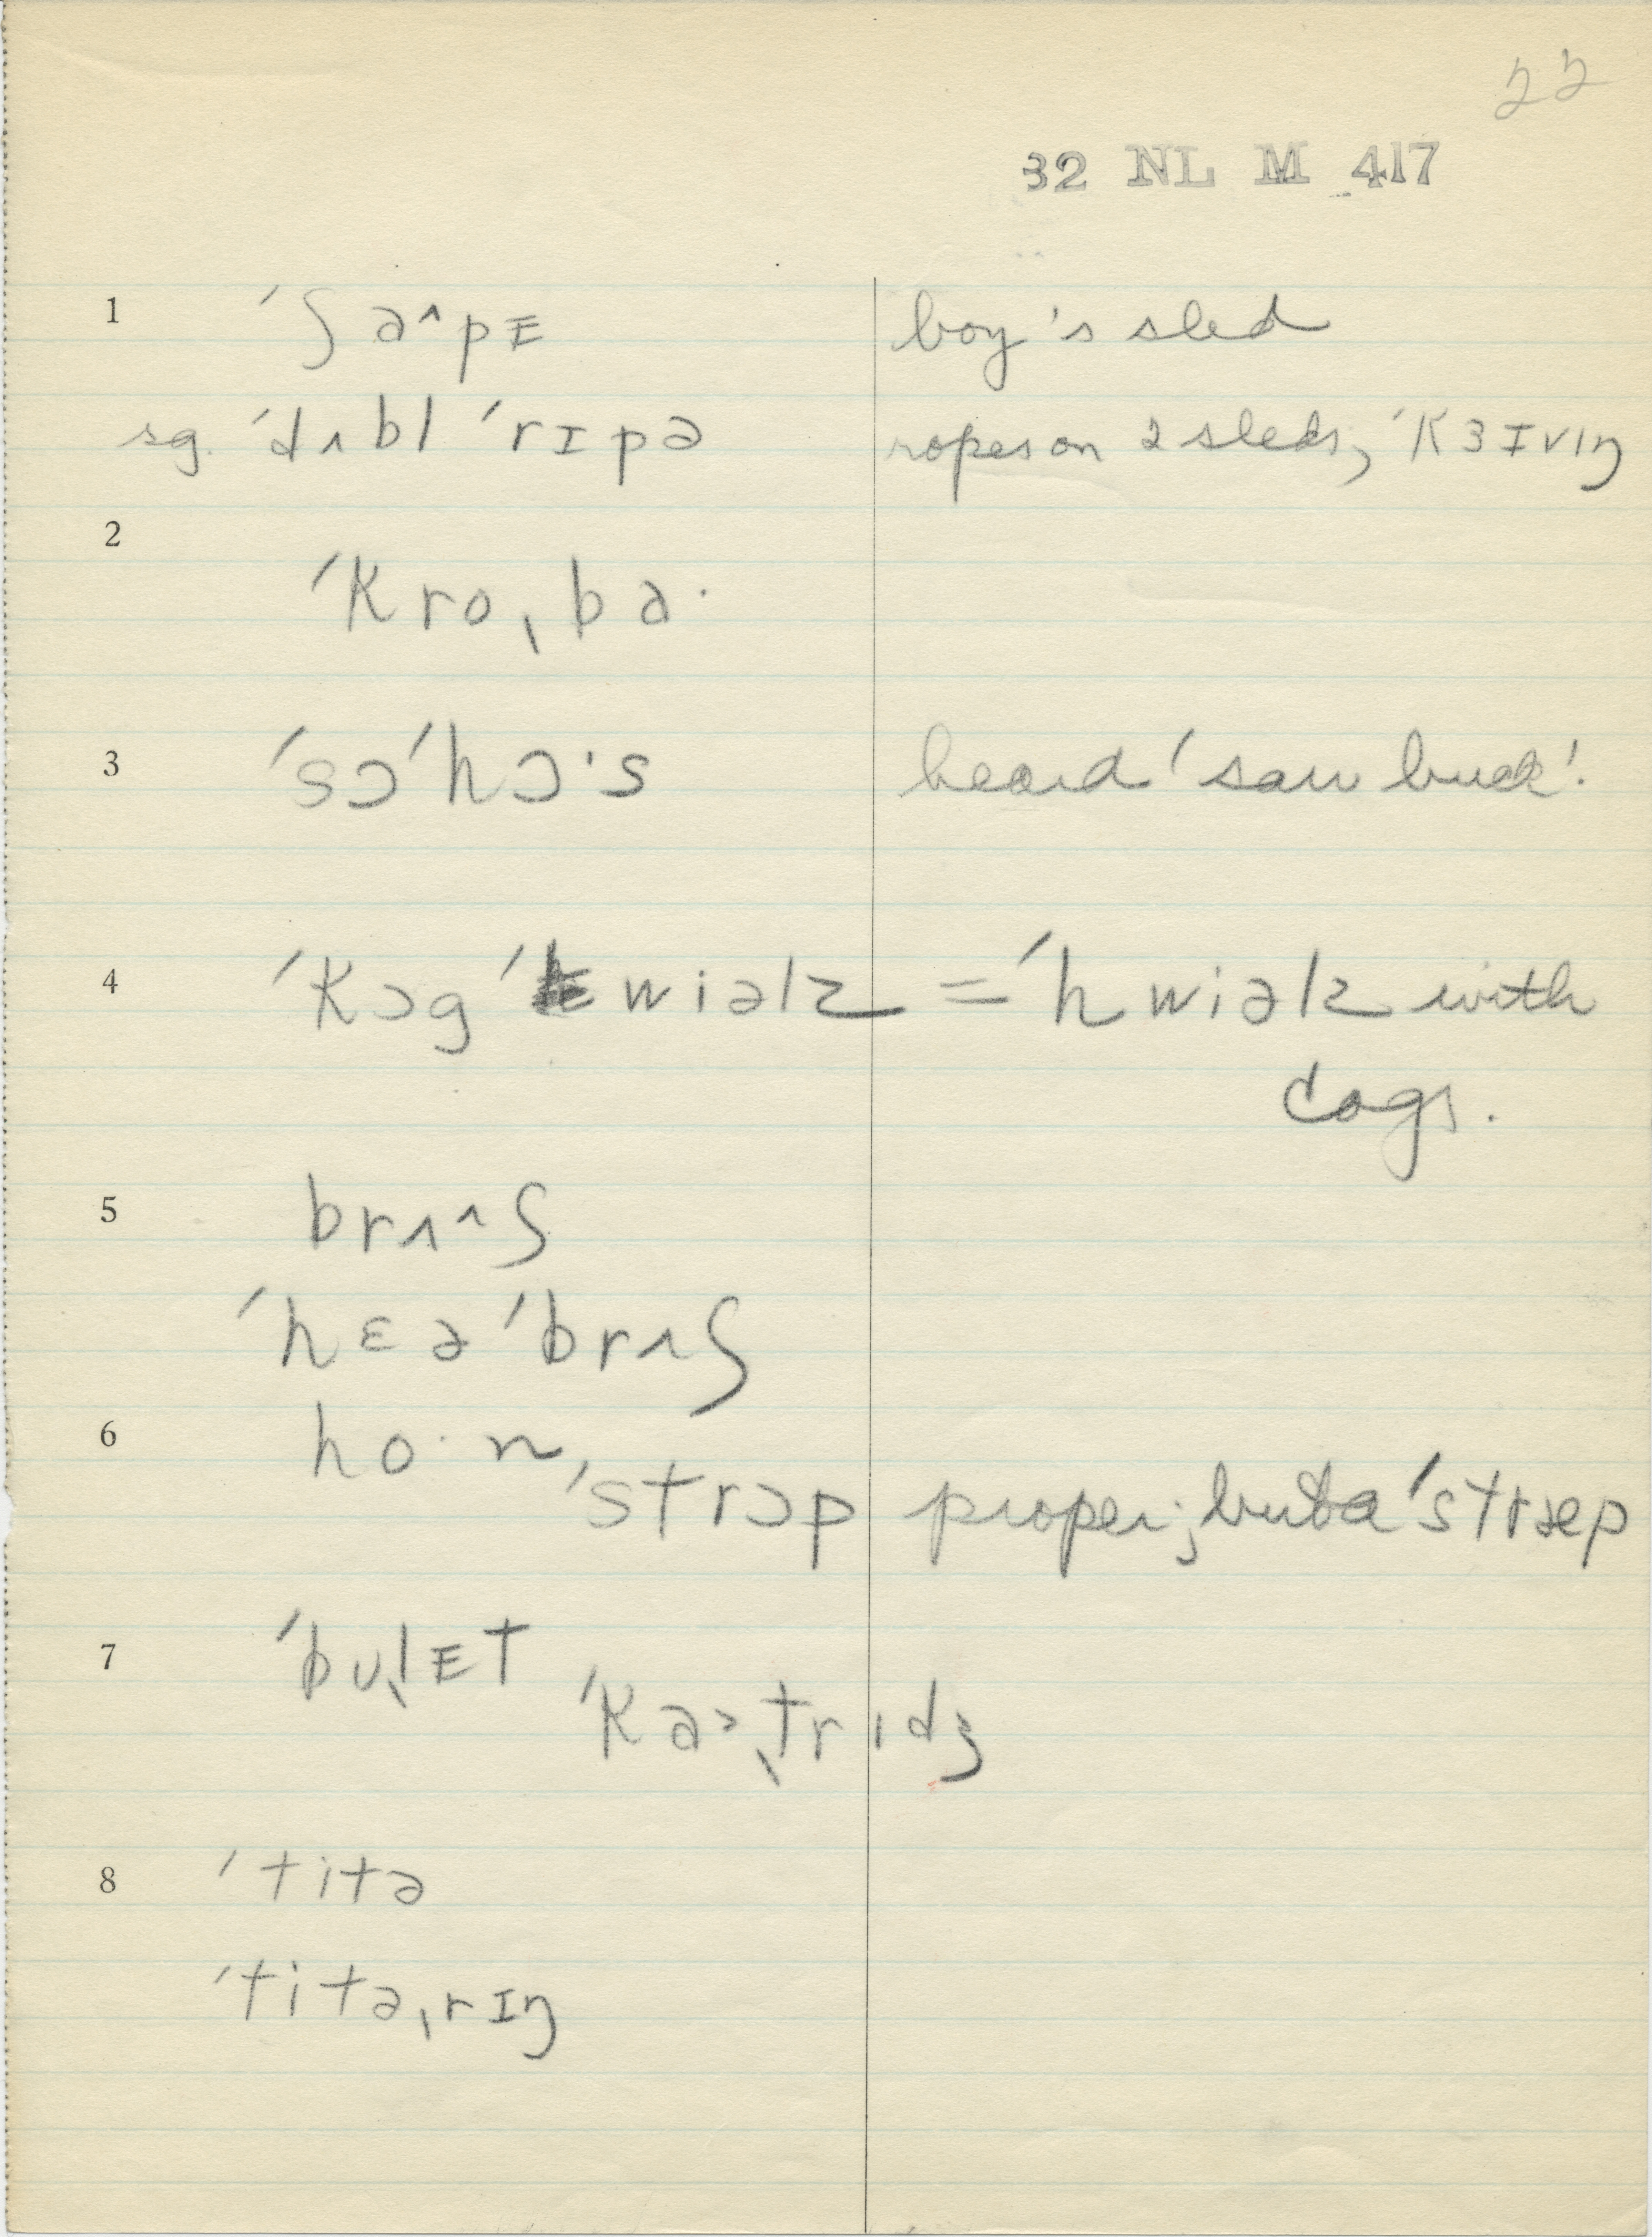 22
32 NL M 417
1 ˈʃa^pᴇ boy's sled
sg. ˈdʌbl ˈrɪpə ropes on 2 sleds, ˈkɜɪvıŋ
2
ˈkroˌba·
3 ˈsɔˈhɔ·s heard 'saw buck'.
4 ˈkɔg ˈwiəlz = ˈhwiəlz with
cogs.
5 brʌ^ʃ
ˈhɛəˈbrʌʃ
6 ho·n
ˈstrɔp proper; but a ˈstræp
7 ˈbuˌlᴇt
ˈka>ˌtrıdʒ
8 ˈtitə
ˈtitəˌrɪŋ